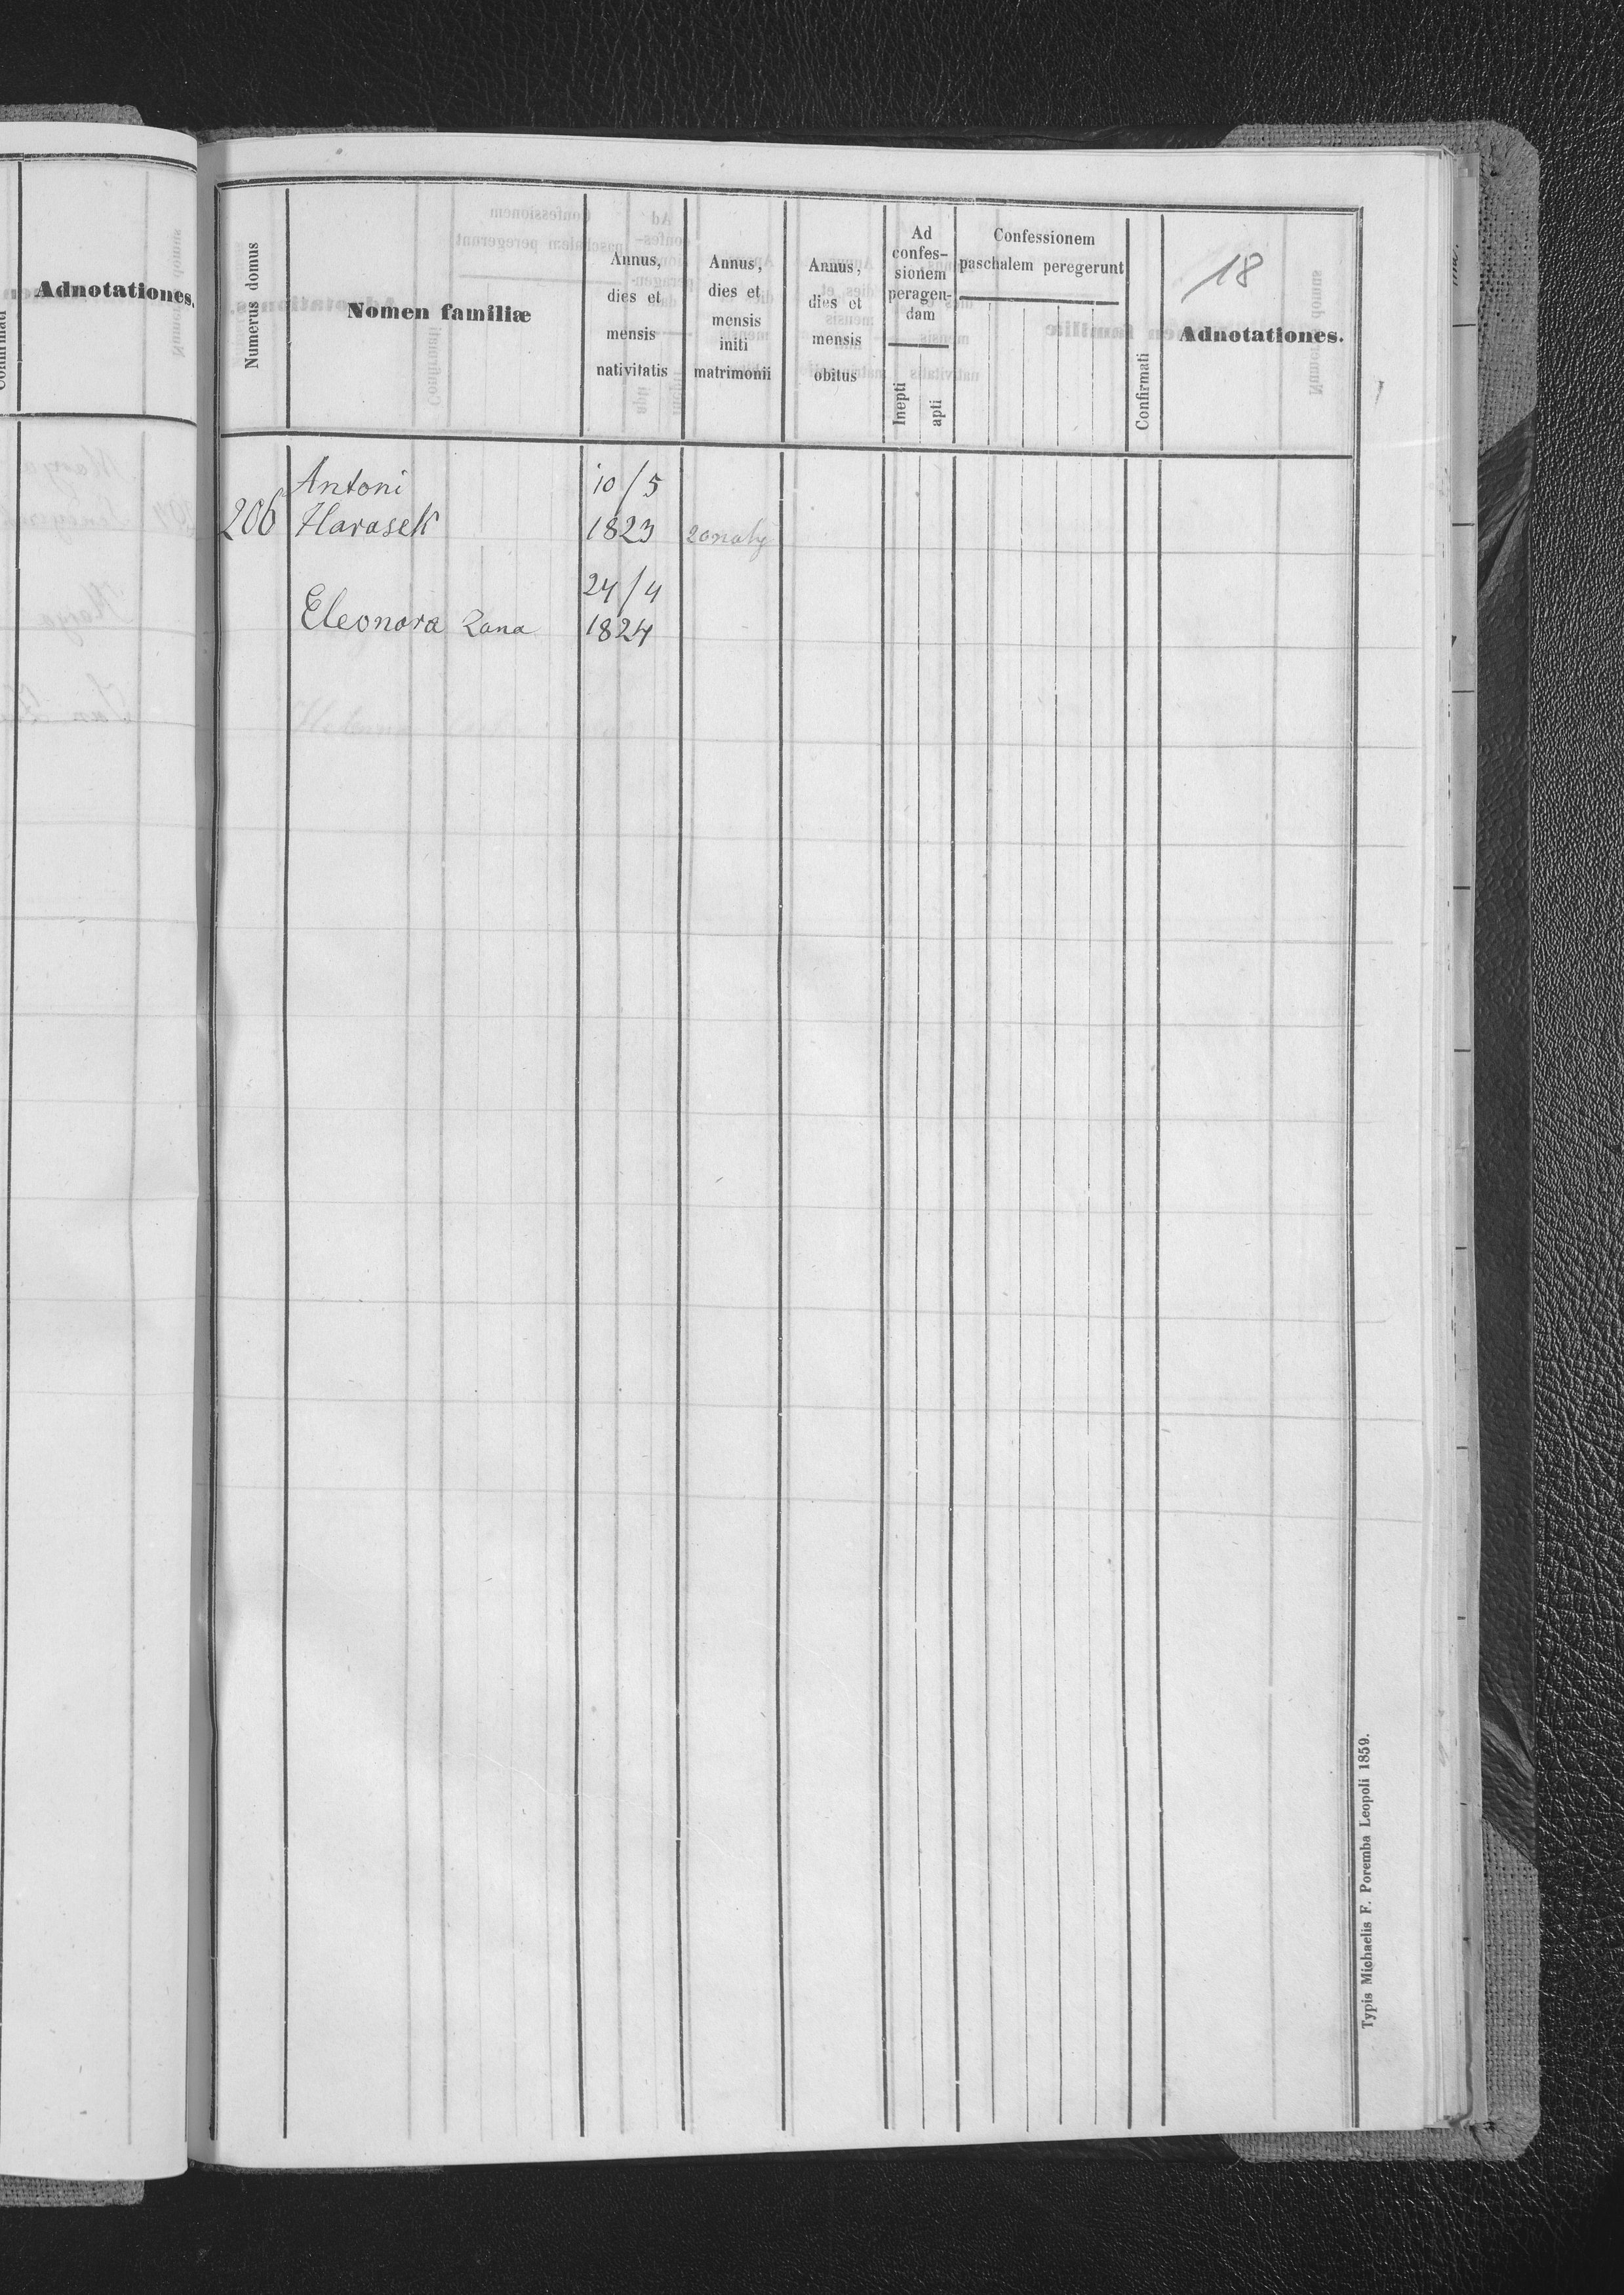 Adnotationes.
18
Numerus domus
Nomen familiæ
Annus,
dies et
mensis
nativitatis
Annus,
dies et
mensis
initi
matrimonii
Annus,
dies et
mensis
obitus
Ad
confes-
sionem
peragen-
dam
Inepti
apti
Confessionem
paschalem peregerunt
Confirmati
Adnotationes.
Antoni 10/5
206 Harasek 1823
24/4
Eleonora Zona 1824
Typis Michaelis F. Poremba Leopoli 1859.